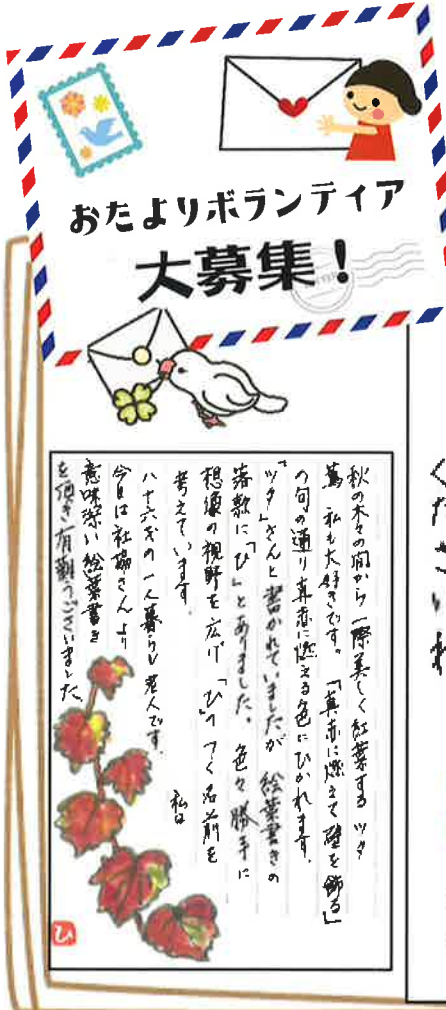 おたよりボランティア
大募集！
秋の木々の間から一際美しく紅葉する ツタ
蔦 私も大好きです。「真赤に燃えて壁を飾る」
の句の通り真赤に燃える色にひかれます。
「ツタ」さんと書かれていましたが 絵葉書きの
落款に「ひ」とありました。 色々勝手に
想像の視野を広げ 「ひ」の つく名前を
考えています。 私は
八十六才の一人暮らし老人です。
今日は社協さんより
意味深い絵葉書き
を頂き有難うございました。
ひ